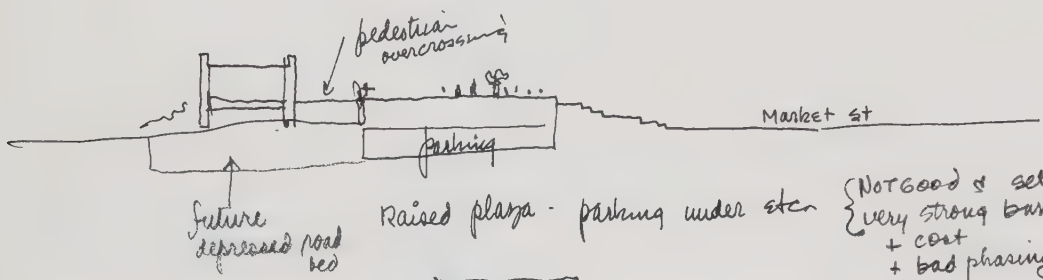 pedestrian
overcrossing
Market st
parking
future
depressed road
bed
Raised plaza - parking under etc
{NOT GOOD
{very strong
+ cost
+ bad phasing